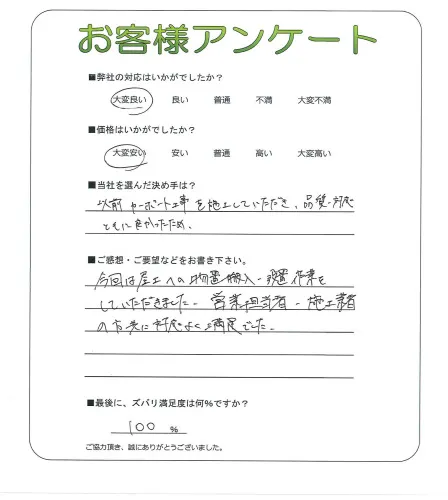 お客様アンケート
■弊社の対応はいかがでしたか？
大変良い 良い 普通 不満 大変不満
■価格はいかがでしたか？
大変安い 安い 普通 高い 大変高い
■当社を選んだ決め手は？
以前カーポート工事を施工していただき、品質・対応
ともに良かったため、
■ご感想・ご要望などをお書き下さい。
今回は屋上への物置搬入・設置作業を
していただきました。営業担当者・施工業者
の方共に対応よく満足でした。
■最後に、ズバリ満足度は何%ですか？
100 %
ご協力頂き、誠にありがとうございました。